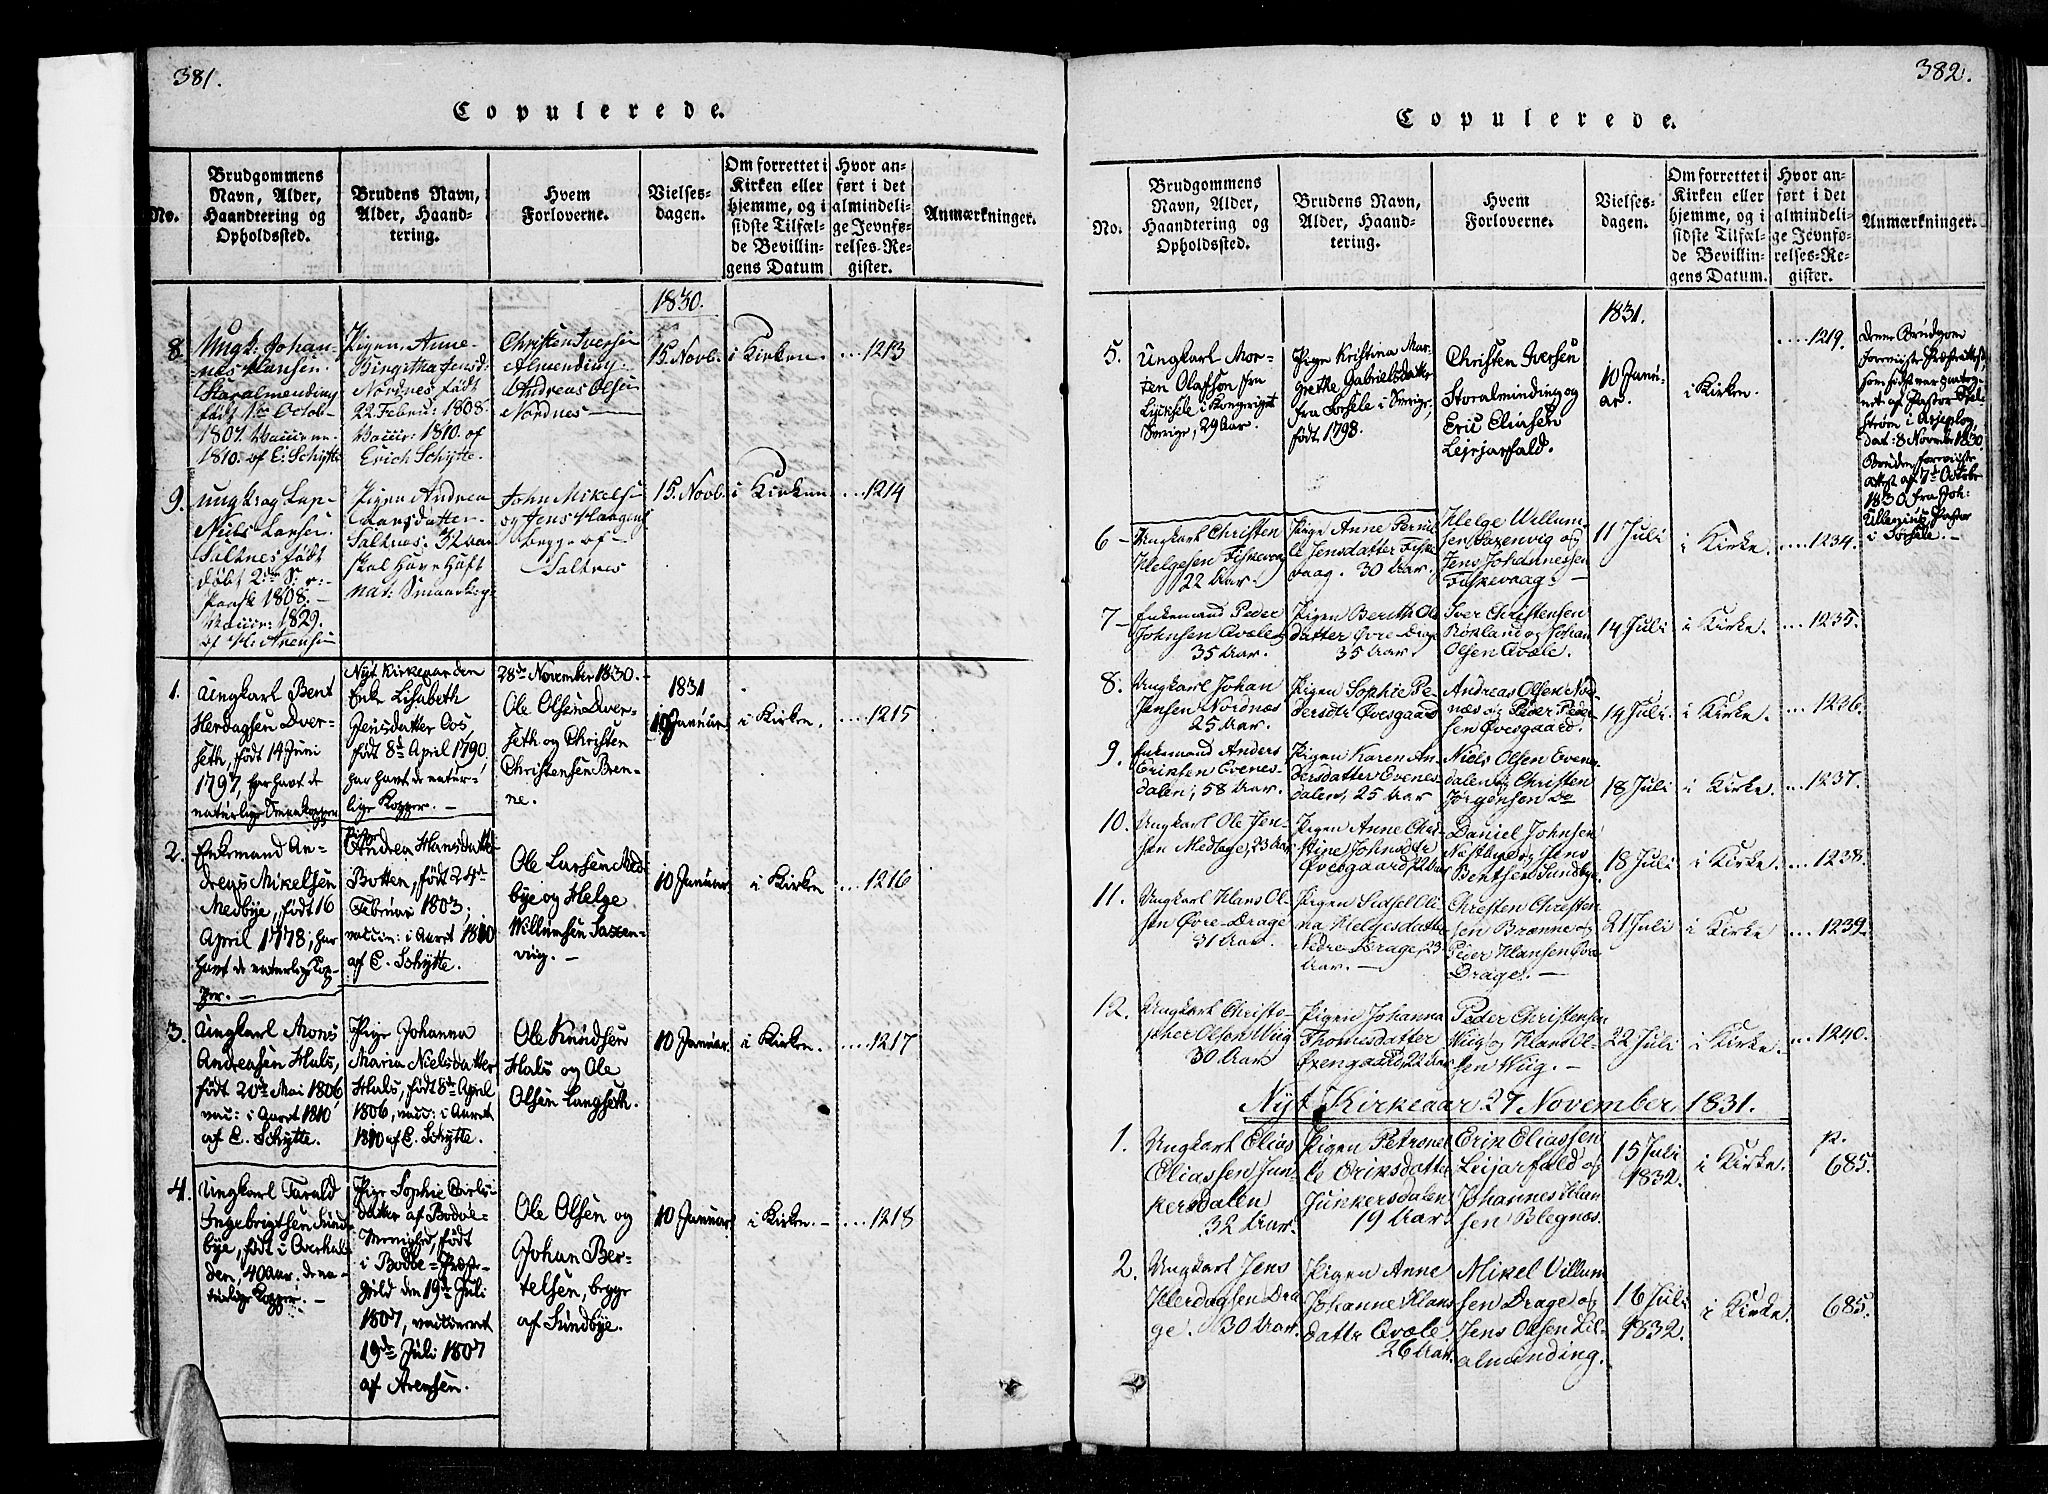 381.
Copulerede.
No.
Brudgommens
Navn, Alder,
Haandtering og
Opholdssted.
Brudens Navn,
Alder, Haand-
tering.
Hvem
Forloverne.
Vielses-
dagen.
Om forrettet i
Kirken eller
hjemme, og i
sidste Tilfæl-
de Bevillin-
gens Datum
Hvor an-
ført i det
almindeli-
ge Jevnfø-
relses-Re-
gister.
Anmærkninger.
1830.
8.
Ungk: Johan-
nes Hansen
Storalmending
født 1ste Octob-
1807. Vaccine.
1810. af E: Schytte
Pigen Anne
Birgitha Jensd:
Nordnes født
22 Febru: 1808.
Vaccin: 1810. af
Erich Schytte.
Christen Iversen
Almending
Andreas Olsen
Nordnes
15. Novb.
i Kirken.
....1213
9.
Niels Larsen
Saltnes født
døbt 2den S: e:
Paask 1808.
Vaccin: 1829.
af H: Arensen
Pigen Andrea
Hansdatter
Saltnes. 32 aar
skal Have Haft
nat: Smaakop
John Mikelse
og Jens Haagens
begge af
Saltnes
15. Novb.
i Kirken
...1214
Nyt Kirkeaar den 28de November 1830.
1.
Ungkarl Bent
Herdagsen Dver-
seth, født 14 Juni
1797, har havt de
naturlige Smaakopper
Enke Lisabeth
Jensdatter Oos,
født 8de April 1790.
har havt de natur-
lige Kopper. —
Ole Olsen Dver-
seth og Christen
Christensen Bren-
ne.
1831
10 Januar
i Kirken.
....1215
2.
Enkemand An-
dreas Mikelsen
Medbye, født 16
April 1778, har
havt de naturlig Kop-
per. —
Pige
Andrea Hansdatter
Botten, født 24de
Februar 1803;
vaccin: i Aaret 1810
af E. Schytte.
Ole Larsen Med-
bye og Helge
Willumsen Saxen-
viig. —
10 Januar
i Kirken
....1216
3.
Ungkarl Mons
Andreasen Hals,
født 20de Mai 1806,
vac: i Aaret 1810
af E. Schytte.
Pige Johanna
Maria Nielsdatter
Hals, født 8de April
1806, vacc: i Aaret
1810 af E. Schytte.
Ole Knudsen
Hals og Ole
Olsen Langseth.
10 Januar.
i Kirken.
....1217
4.
Ungkarl Tarald
Ingebrigtsen Sund-
bye, født i Overhal-
den, 40 Aar. de na-
turlige Kopper. —
Pige Sophie Carls-
datter af Bodøe-
Menighed, født
i Bodøe-Præste-
gield den 19de Juli
1807, vaccineret
19de Juli 1807
af Arensen.
Ole Olsen og
Johan Ber-
telsen, begge
af Sundbye.
10 Januar
i Kirken. —
....1218
382.
Copulerede.
No.
Brudgommens
Navn, Alder,
Haandtering og
Opholdssted.
Brudens Navn,
Alder, Haand-
tering.
Hvem
Forloverne.
Vielses-
dagen.
Om forrettet i
Kirken eller
hjemme, og i
sidste Tilfæl-
de Bevillin-
gens Datum.
Hvor an-
ført i det
almindeli-
ge Jevnfø-
relses-Re-
gister.
Anmærkninger.
1831.
5.
Ungkarl Mor-
ten Olafson fra
Lycksele i Kongeriget
Sverige, 29 Aar.
Pige Kristina Mar-
grethe Gabrielsdatter
fra Sorsele i Sverige,
født 1798.
Christen Iversen
Storalminding og
Eric Eliasen
Lejrjarfald.
10 Janu-
ar.
i Kirken.
....1219.
Denne Brudgom
foreviste Præsteattest
som sidst var paateg-
net af Pastor
strøm i Arjeplog,
dat: 8 November 1830
Bruden foreviste
attest af 7de October
1830, fra Joh:
Ullenius, Pastor
i Sorsele. —
6 —
Ungkarl Christen
Helgesen Fiskevaag
22 Aar.
Pige Anne Pernil-
le Jensdatter Fiske-
vaag. 30 Aar.
Helge Willum-
sen Saxenvig og
Jens Johannessen
Fiskevaag. —
11 Juli
i Kirke.
....1234.
7 —
Enkemand Peder
Johnsen Qvæle
35 Aar.
Pigen Bereth Ols-
datter Øvre Drage
35 Aar.
Iver Christensen
Røkland og Johan
Olsen Qvæle.
14 Juli
i Kirke.
....1235.
8.
Ungkarl Johan
Jensen Nordnæs
25 Aar.
Pigen Sophie Pe-
dersdtr Øvesgaard
Andreas Olsen Nord-
næs og Peder Peder-
sen Øvesgaard.
14 Juli.
i Kirke.
....1236.
9.
Enkemand Anders
Eriksen Evenes-
dalen, 58 Aar.
Pigen Karen An-
dersdatter Evenes-
dalen, 25 Aar
Niels Olsen Evenes-
dalen og Christen
Jørgensen do
18 Juli
i Kirke.
...1237.
10.
Ungkarl Ole Jen-
sen Medlage, 23 Aar
Pigen Anne Chri-
stine Johnsdtr
Øvesgaard, 22 Aar
Daniel Johnsen
Næstbye og Jens
Bentsen Sundbye.
18 Juli
i Kirke
....1238.
11.
Ungkarl Hans Ol-
sen Øvre-Drage
31 Aar.
Pigen Sidsel Oli-
na Helgesdatter
Nedre Drage, 23
Aar. —
Christen Christen-
sen Brænne og
Peder Hansen Øvre
Drage. —
21 Juli
i Kirke
....1239.
12.
Ungkarl Christo-
pher Olsen Wiig
30 Aar.
Pigen Johanna
Thomesdatter
Øxengaard, 22 Aar
Peder Christensen
Wiig og Hans Ol-
sen Wiig. —
22 Juli
i Kirke
...1240.
Nyt Kirkeaar 27 November 1831.
1.
Ungkarl Elias
Eliassen Jun-
kersdalen
32 Aar.
Pigen Petronel-
le Eriksdatter
Junkersdalen
19 Aar.
Erik Eliassen
Leijarfald og
Johannes Han-
sen Blegnæs.
15 Juli
1832.
i Kirke.
p.
685.
2.
Ungkarl Jens
Herdagsen Dra-
ge. 30 Aar.
Pigen Anne
Johanne Hans
dattr Qvæle
26 Aar.
Mikel Villum-
sen Drage og
Jens Olsen Lil-
almending.
16 Juli
1832.
i Kirke.
685.